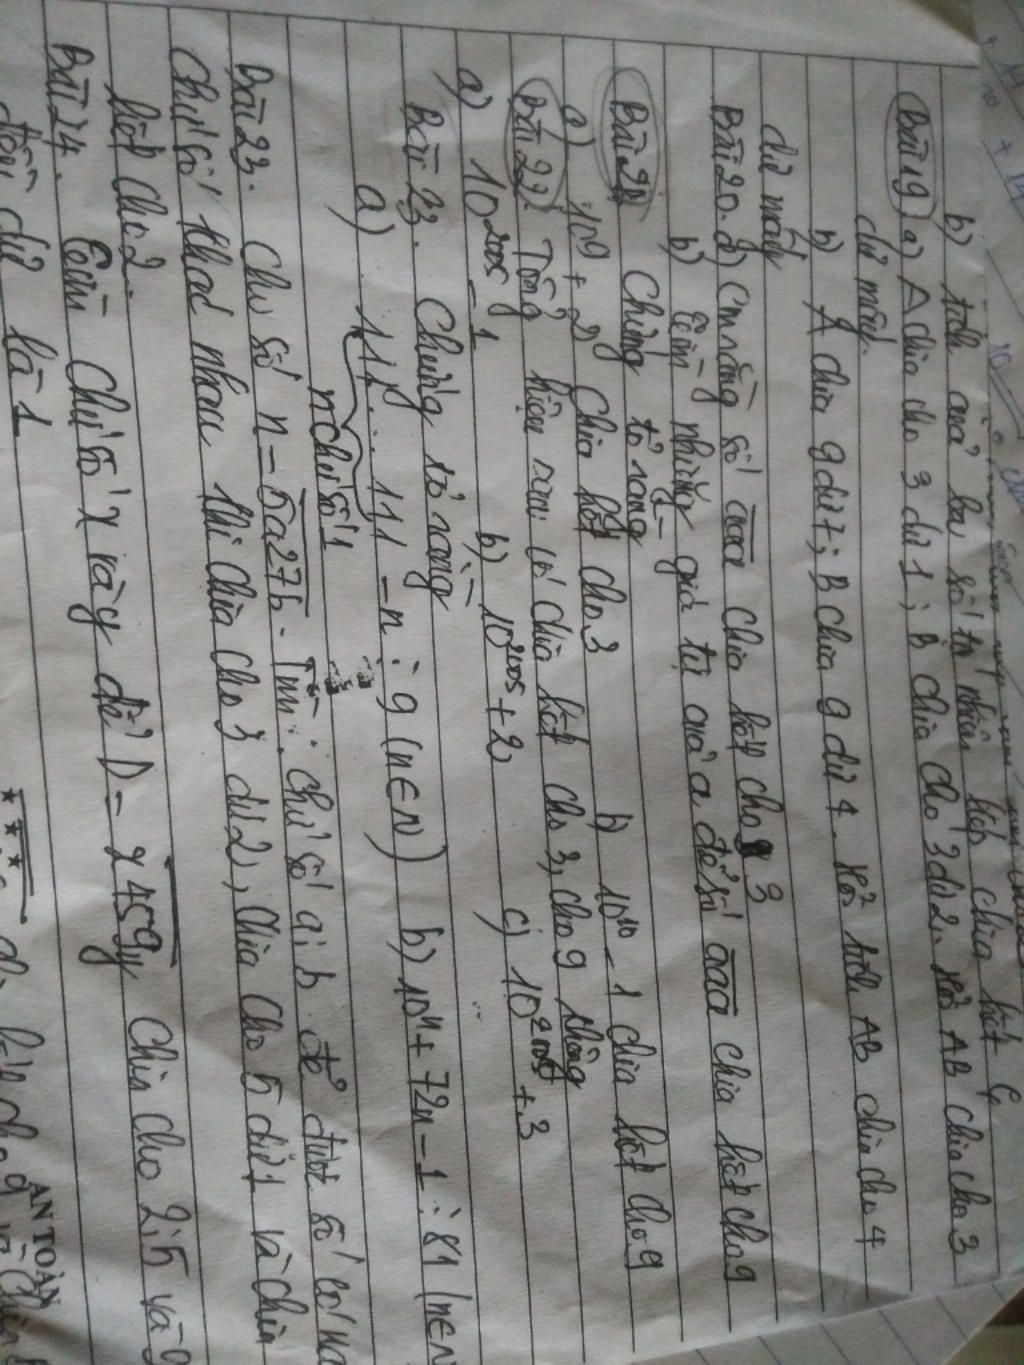 b) tích của ba số tự nhiên liên tiếp chia hết 6
Bài 19) a) A chia cho 3 dư 1; B chia cho 3 dư 2. Hỏi AB chia cho 3
dư mấy.
b) A chia 9 dư 7; B chia 9 dư 4. Hỏi tích AB chia cho 4
dư mấy
Bài 20. a) Cm rằng số aaa chia hết cho 3
b) Tìm những giá trị của a để số aaa chia hết cho 9
Bài 21 Chứng tỏ rằng
a) 10⁹ + 2 chia hết cho 3 b) 10¹⁰ - 1 chia hết cho 9
Bài 22) Tổng hiệu sau có chia hết cho 3, cho 9 không
a) 10²⁰⁰⁵ - 1 b) 10²⁰⁰⁵ + 2 c) 10²⁰⁰⁵ + 3
Bài 23. Chứng tỏ rằng
a) 111...111 - n ⋮ 9 (n ∈ N) b) 10ⁿ + 72n - 1 ⋮ 81 (n ∈ N
n chữ số 1
Bài 23. Cho số n = 5a27b. Tìm chữ số a; b để được số có
Chữ số khác nhau thì chia cho 3 dư 2, chia cho 5 dư 1 và chia
hết cho 2.
Bài 24. Tìm chữ số x và y để D = x459y Chia cho 2; 5 và 9
đều dư là 1
AN TOÀN